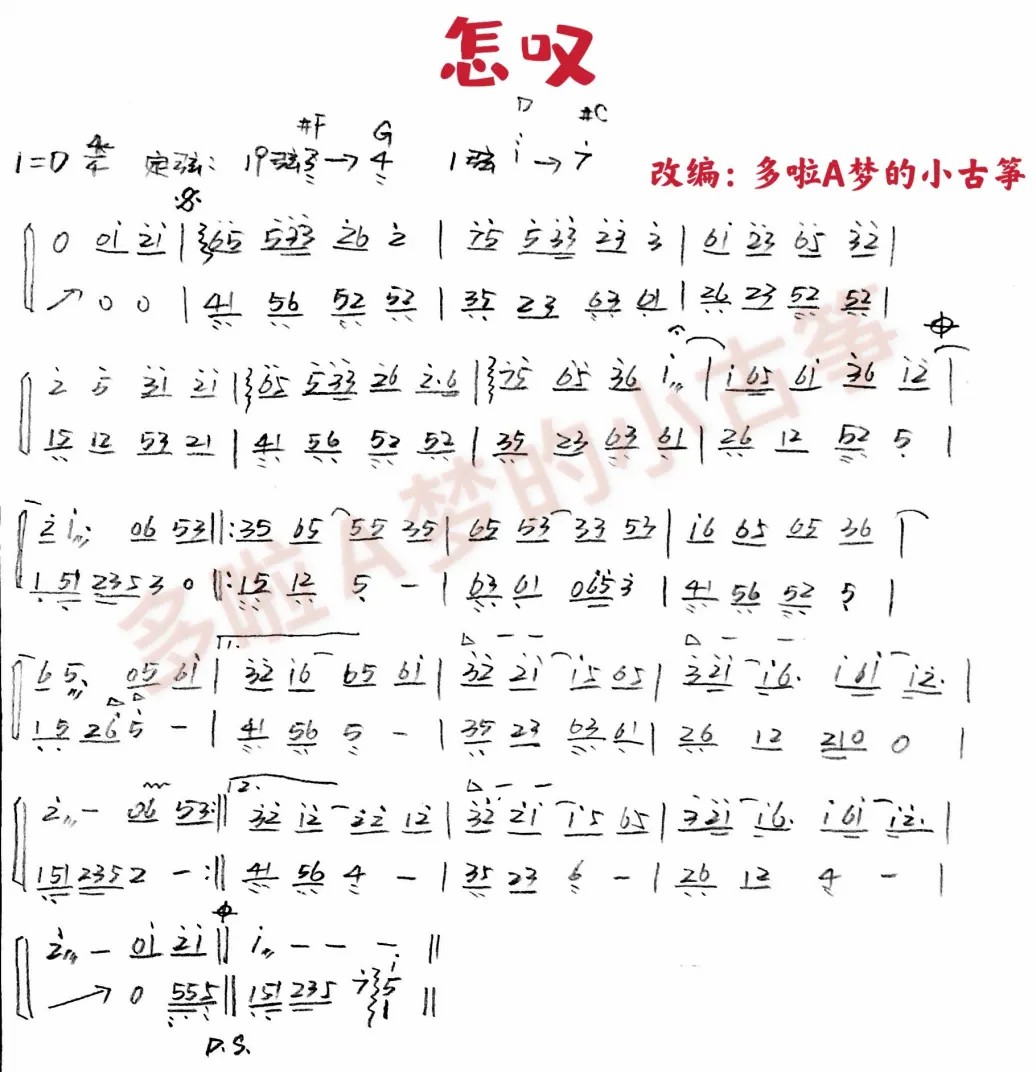 怎叹
#F G D #C
1=D 4/4 定弦: 19弦3→4 1弦i→7
改编:多啦A梦的小古筝
0 01 21 | 65 533 26 2 | 75 533 23 3 | 61 23 65 32 |
↗ 0 0 | 41 56 52 52 | 35 23 63 61 | 26 23 52 52 |
2 5 31 21 | 65 533 26 2·6 | 75 65 36 i | i65 61 36 12 |
15 12 53 21 | 41 56 52 52 | 35 23 63 61 | 26 12 52 5 |
2 1 06 53 ||: 35 65 55 35 | 65 53 33 53 | i6 65 65 36 |
1 51 235 3 0 ||: 15 12 5 - | 63 61 065 3 | 41 56 52 5 |
1.
65 05 61 | 32 16 65 61 | 32 21 15 65 | 321 16· 161 12· |
15 26 5 - | 41 56 5 - | 35 23 63 61 | 26 12 210 0 |
2.
2 - 06 53 :|| 32 12 22 12 | 32 21 15 65 | 321 16· 161 12· |
151 235 2 - :|| 41 56 4 - | 35 23 6 - | 26 12 4 - |
2 - 01 21 || 1 - - - ||
→ 0 555 || 151 235 7 i51 ||
D.S.
多啦A梦的小古筝